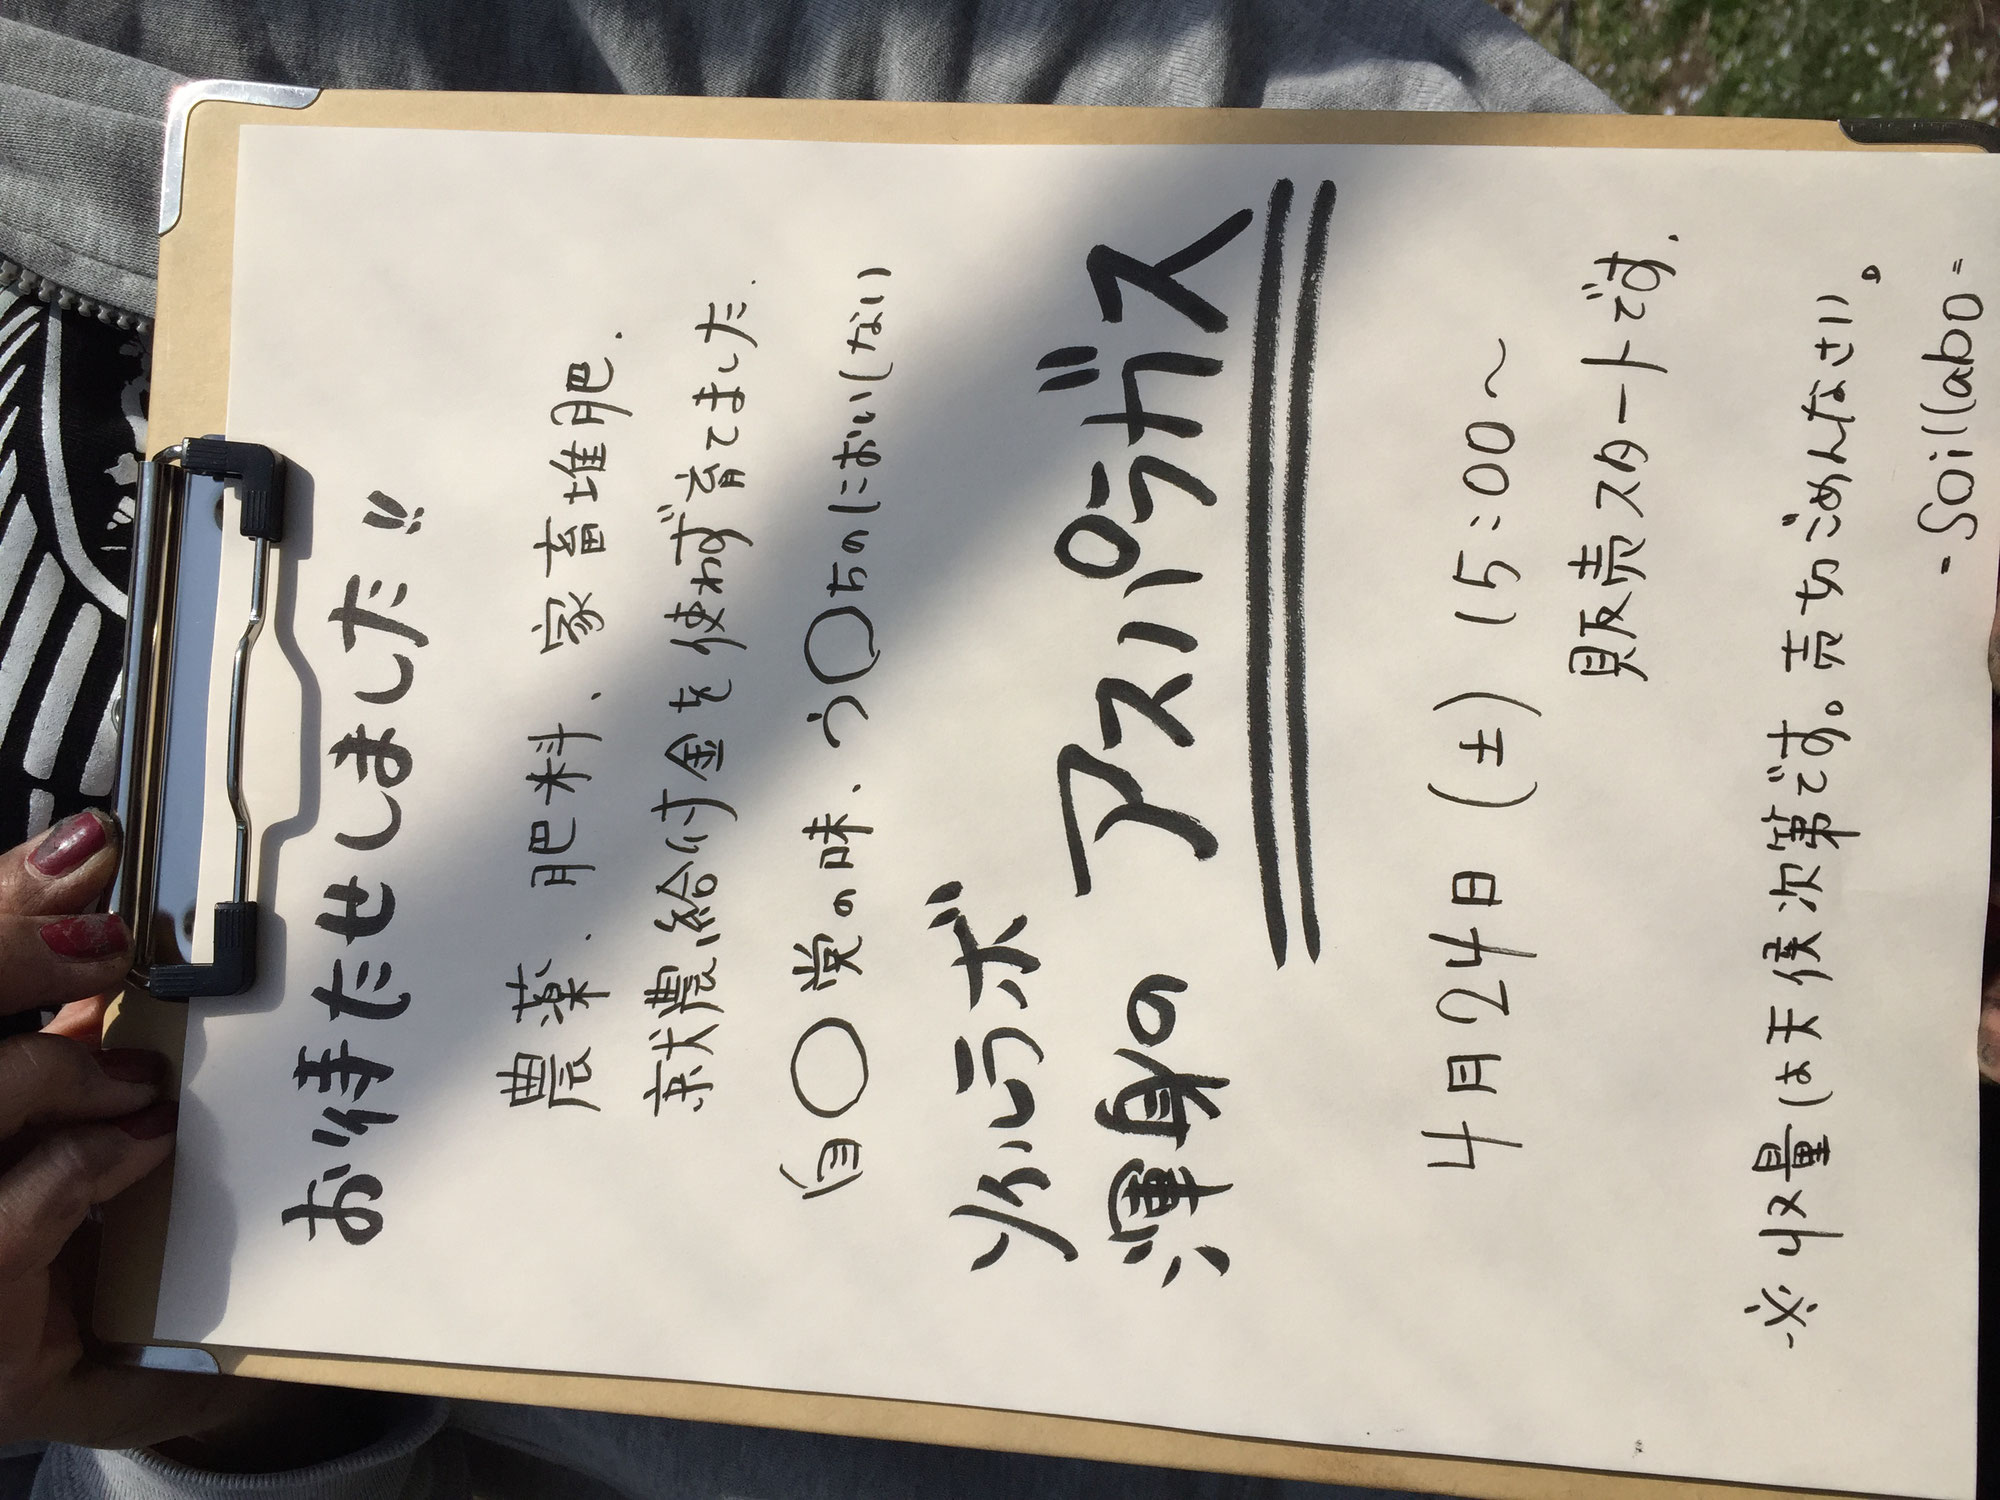 お待たせしました!!
農薬、肥料、家畜堆肥、
就農給付金を使わず育てました.
自〇党の味、う〇ちのにおいしない
ソイルラボ
渾身の アスパラガス
4月24日(土) 15:00〜
販売スタートです.
※収量は天候次第です。売切ごめんなさい。
-Soillabo=